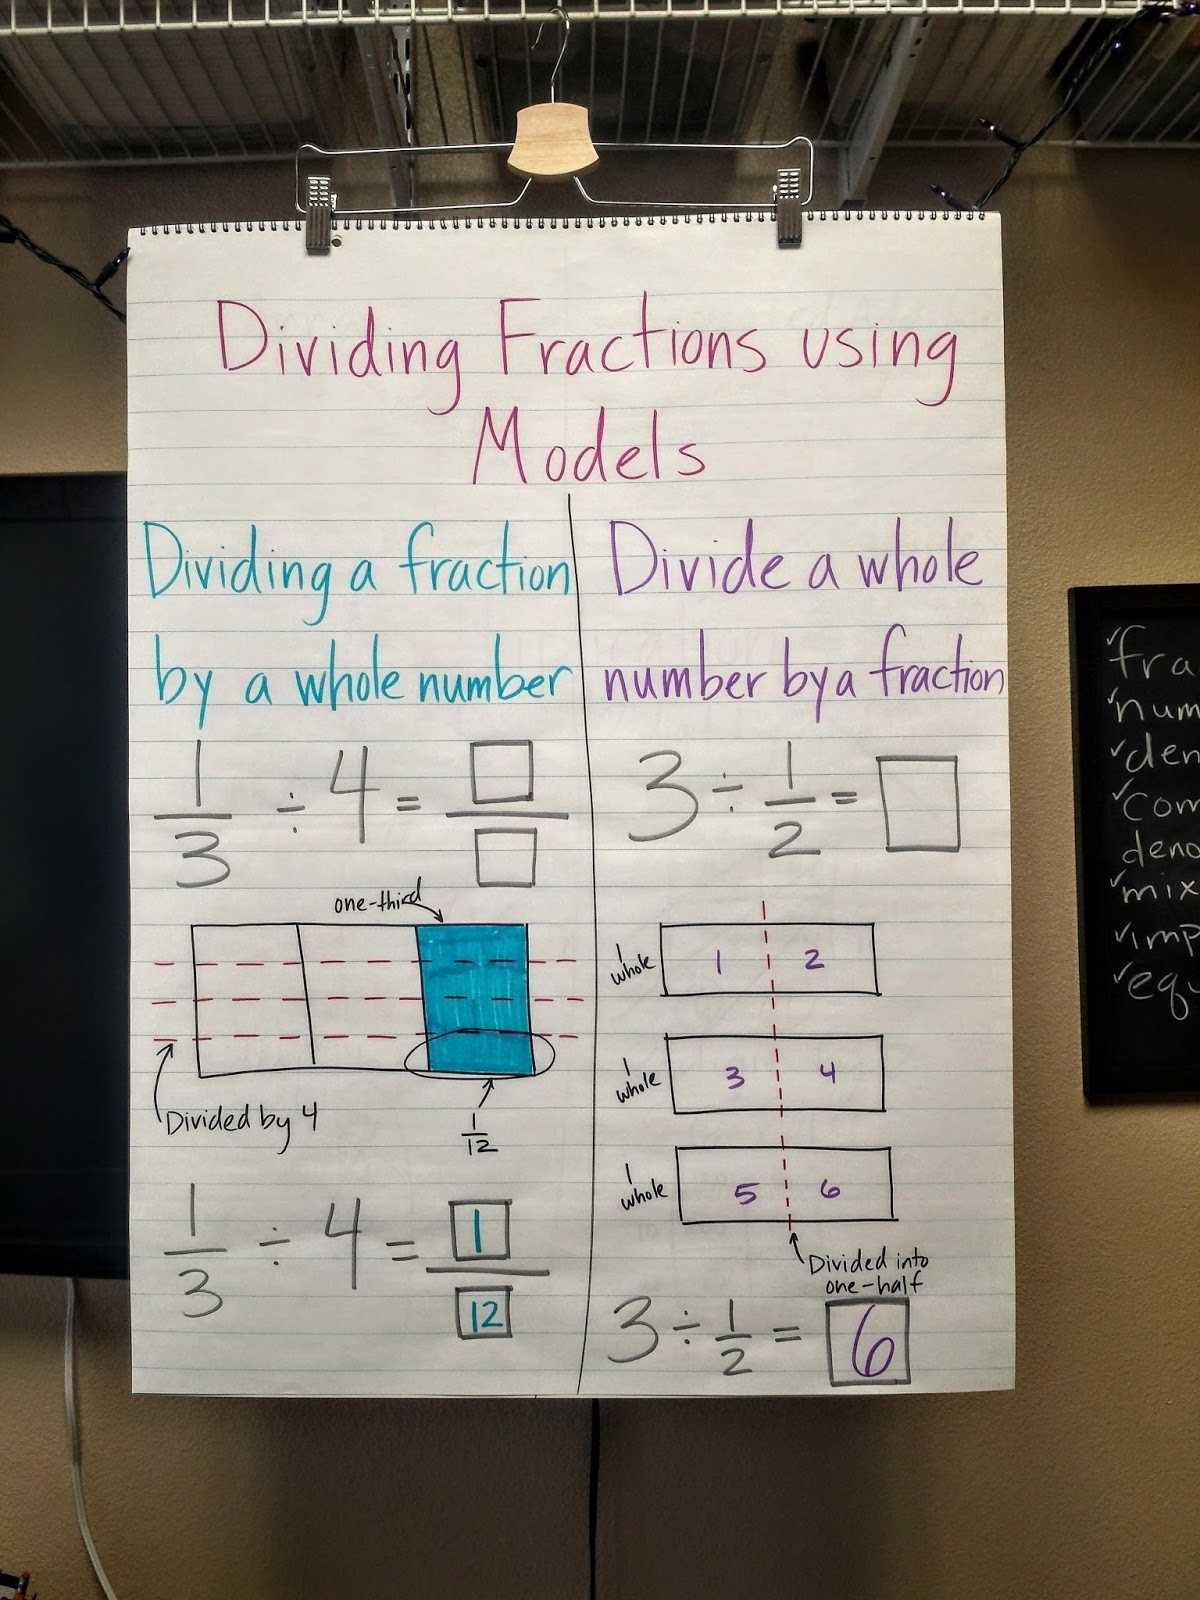 Dividing Fractions using
Models
Dividing a fraction
by a whole number
1/3 ÷ 4 = □/□
one-third
Divided by 4
1/12
1/3 ÷ 4 = 1/12
Divide a whole
number by a fraction
3 ÷ 1/2 = □
1 whole
1 2
1 whole
3 4
1 whole
5 6
Divided into
one-half
3 ÷ 1/2 = 6
deno